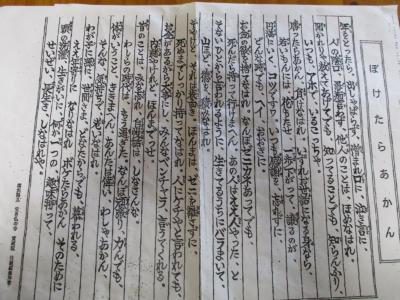 ぼけたらあかん
年をとったら 出しゃばらず 憎まれ口に 泣き言に
人の陰口 愚痴言わず 他人のことは ほめなはれ
聞かれりゃ 教えてあげても 知ってることでも 知らんふり
いつでも アホで いるこっちゃ
勝ったらあかん 負けなはれ いずれお世話になる身なら
若いもんには 花持たせ 一歩下がって 譲るのが
円満にいく コツですわ いつも感謝を 忘れずに
どんな時でも ヘイ おおきに
お金の欲を 捨てなはれ なんぼゼニカネ あってでも
死んだら 持って行けまへん あの人は ええ人やった と
そないに人から 言われるように 生きてるうちに バラまいて
山ほど 徳を 積みなはれ
というても それは表向き ほんまは ゼニを 離さずに
死ぬまで しっかり 持ってなはれ 人にケチやと 言われても
お金があるから 大事にし みんな ベンチャラ 言うてくれる
内証やけれど ほんまでっせ
昔のことは みな忘れ 自慢話は しなさんな
わしらの時代は もう過ぎた なんぼ頑張り 力んでも
体がいうこと ききまへん あんたは偉い わしゃあかん
そんな 気持ちで おりなはれ
わが子に孫に 世間さま どなたからでも 慕われる
ええ年寄りに なりなはれ ボケたらあかん そのために
頭の洗濯 生きがいに 何か一つの 趣味持って
せいぜい 長生き しなはれや